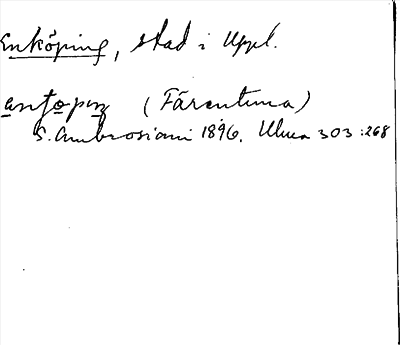 Enköping, stad i Uppl.
(Färentuna)
S. Ambrosiani 1896. Uluma 303:268